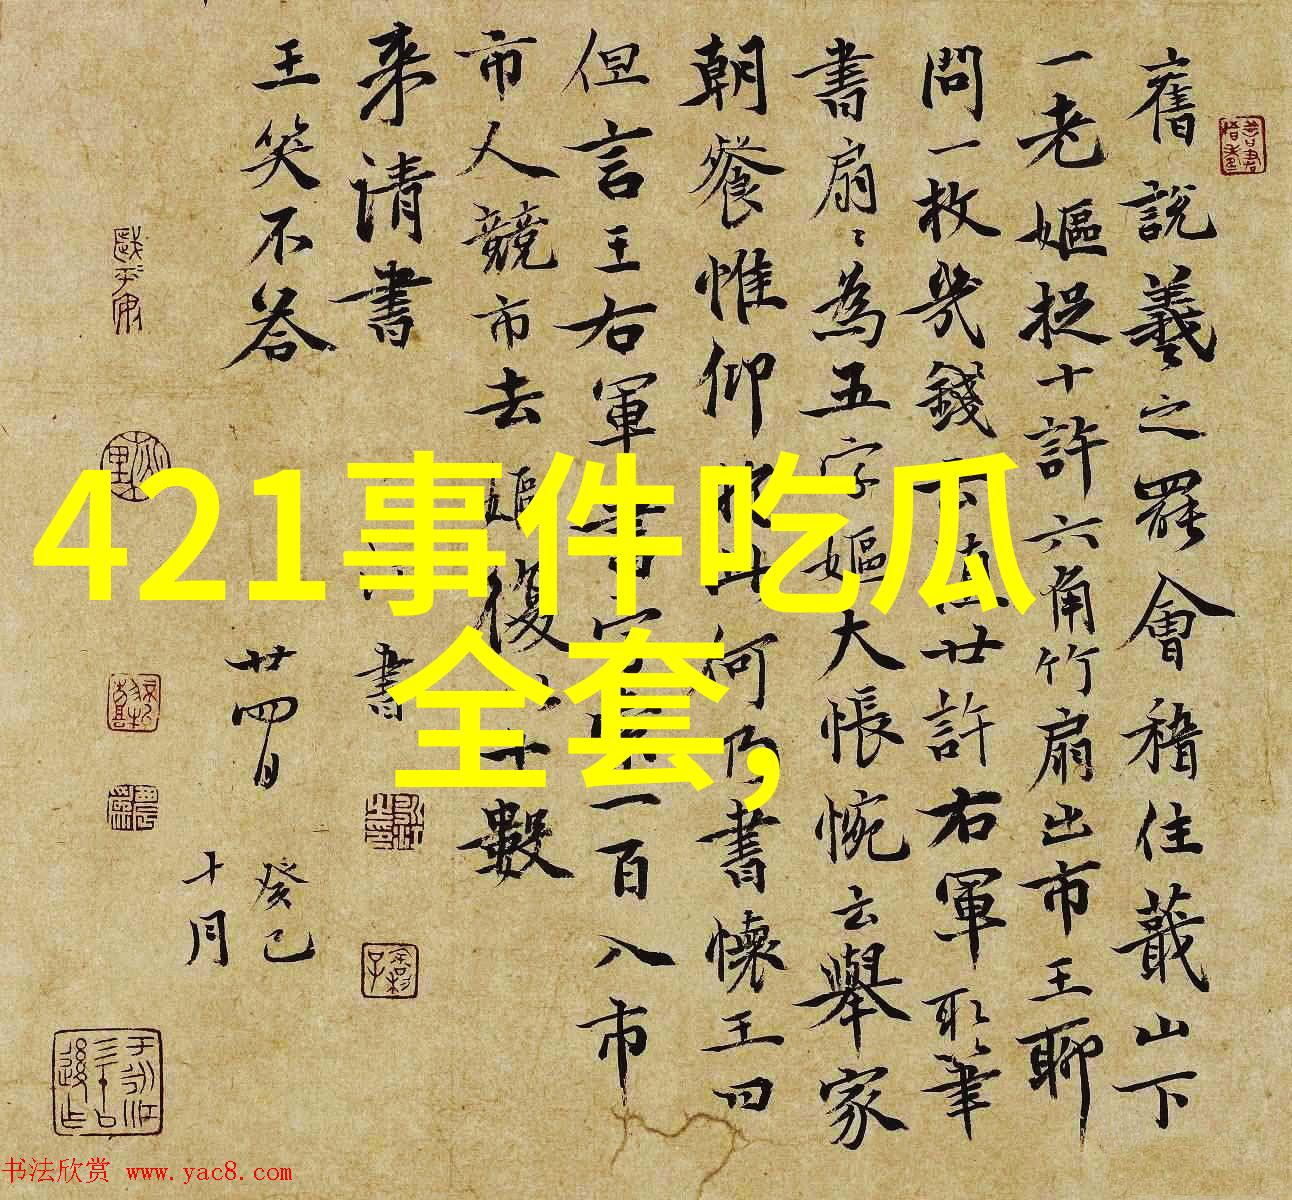 舊說羲之罷會稽住蕺山下
一老嫗捉十許六角竹扇出市王聊
問一枚幾錢云值廿許右軍取筆
書扇〻為五字嫗大悵惋云舉家
朝餐惟仰於此何乃書壞王曰
但言王右軍書字索一百入市
市人競市去嫗復以十數
来請書
王笑不答
書
廿四日
癸巳
十月
421事件吃瓜
全套,
书法欣赏 www.yac8.com